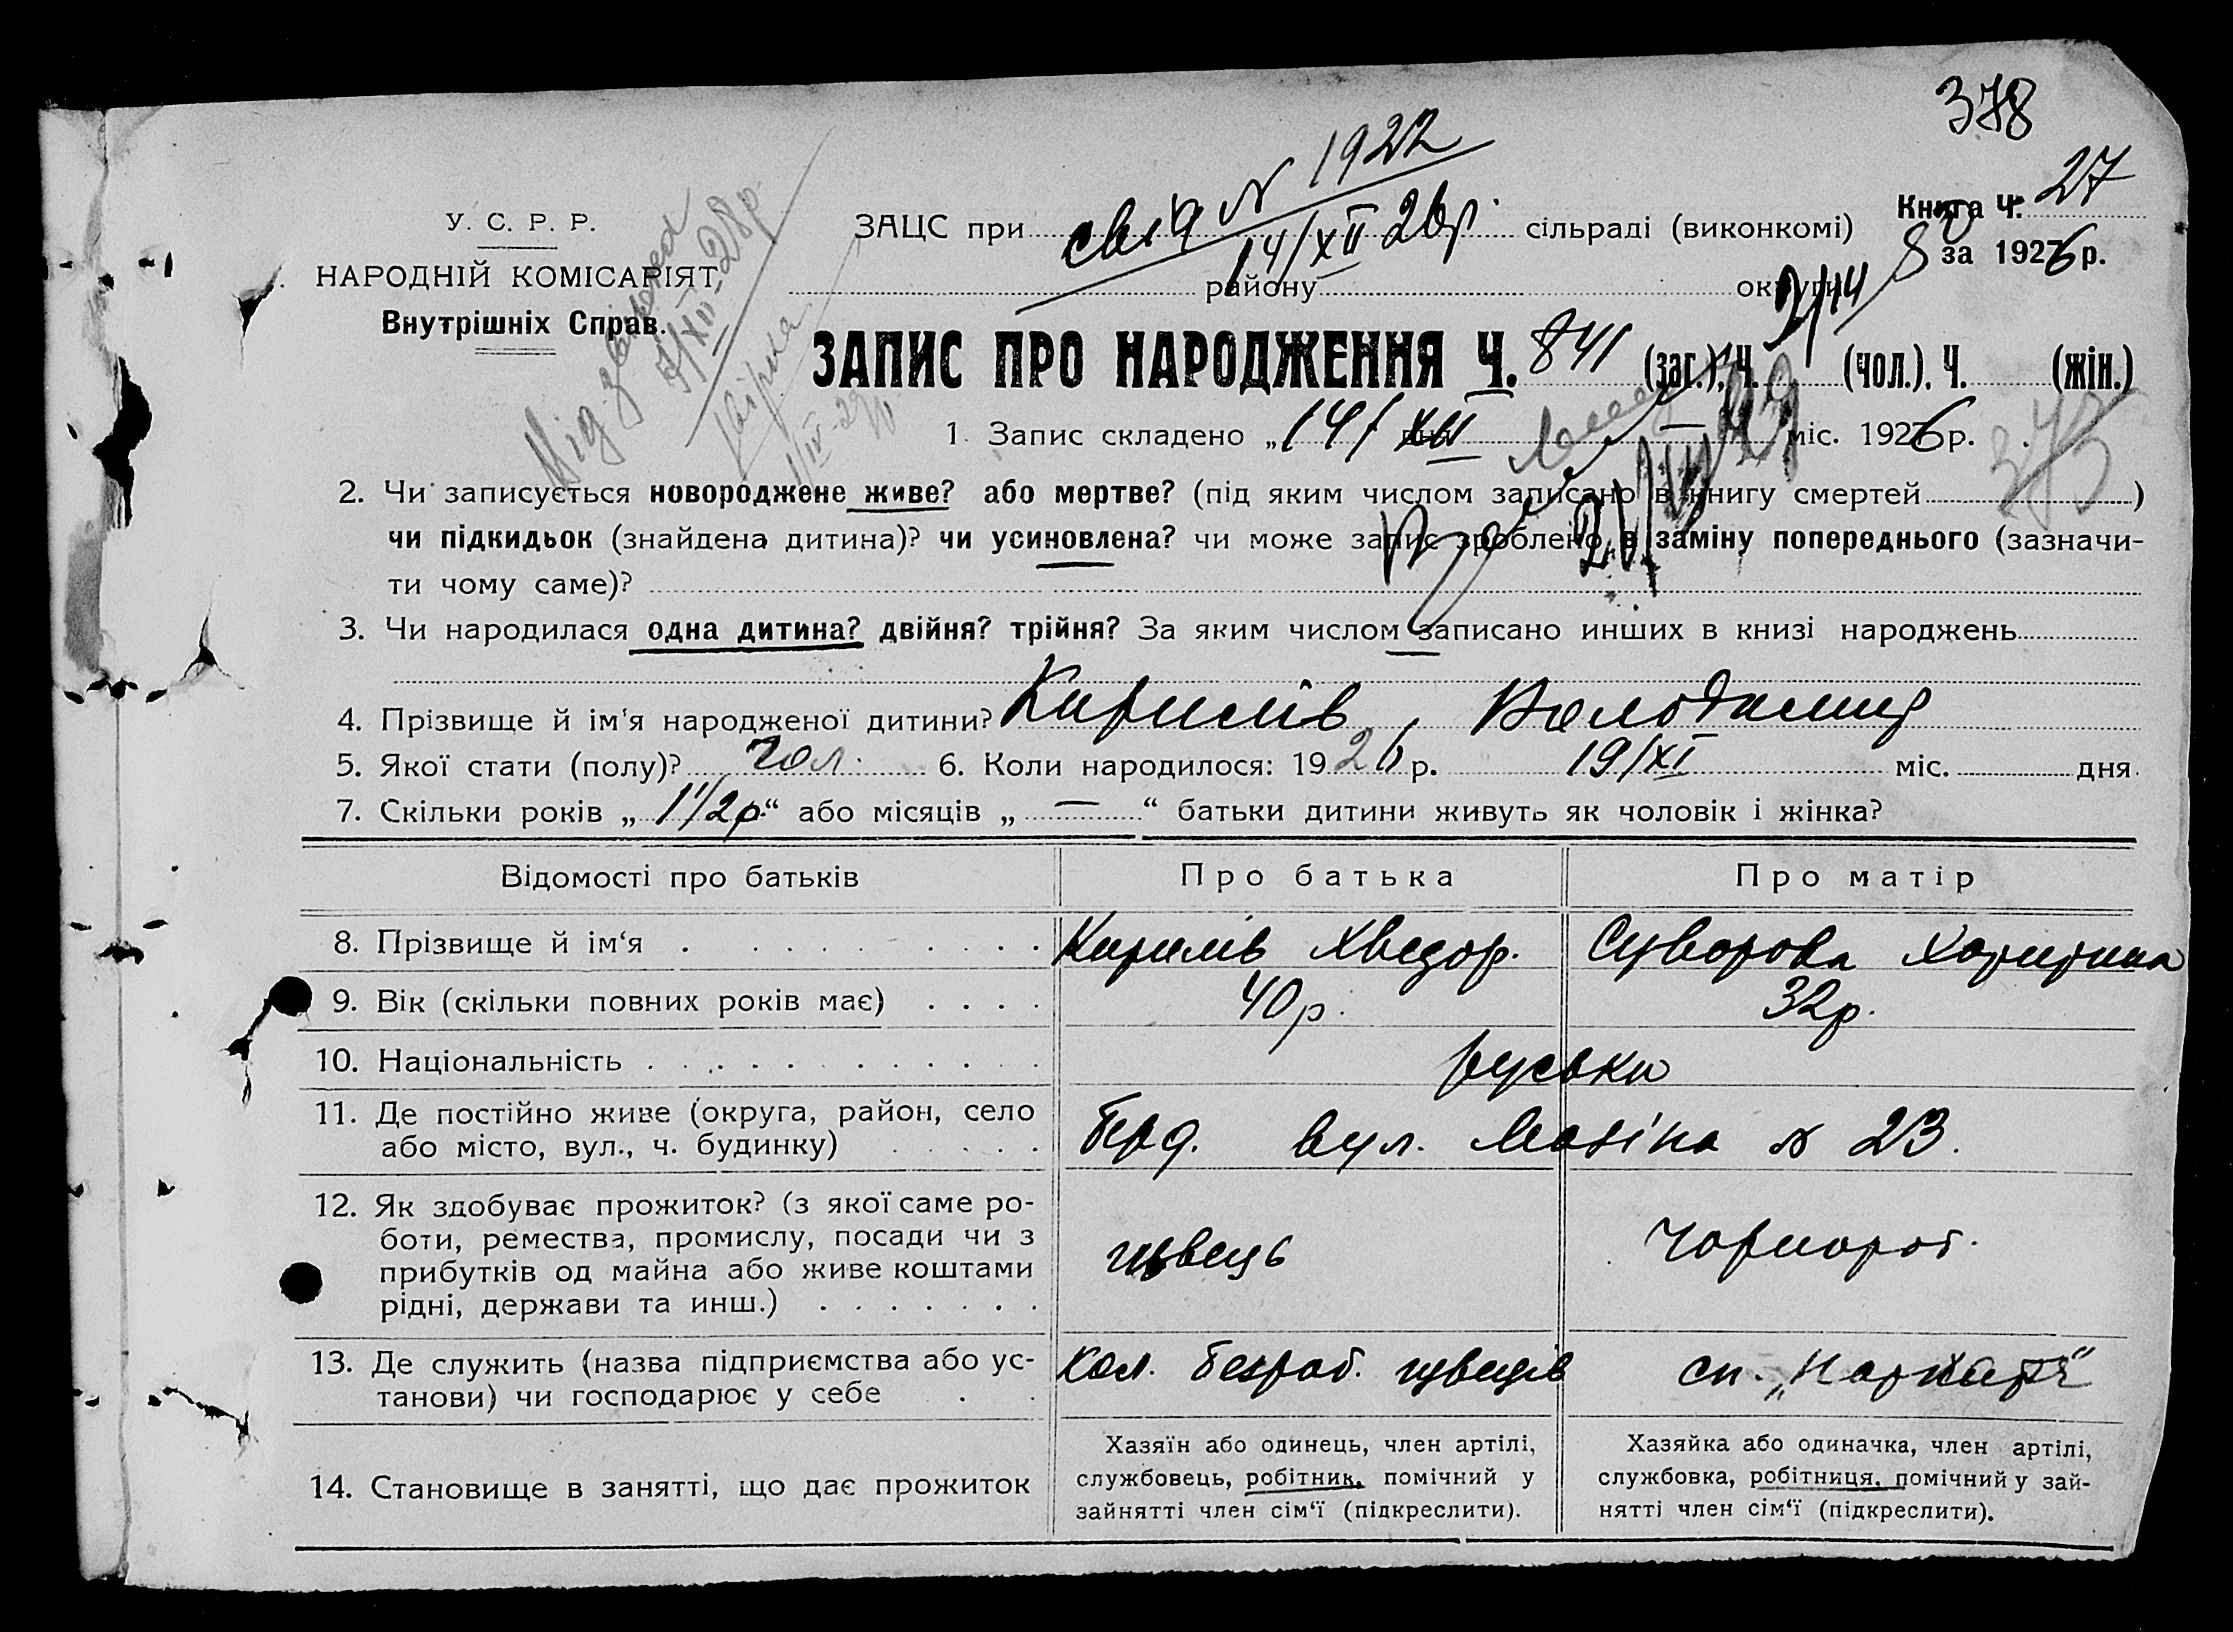 378
У. С. Р. Р.
НАРОДНІЙ КОМІСАРІЯТ
Внутрішніх Справ.
ЗАЦС при сільраді (виконкомі)
району округи
1922
14/XII 26р.
Книга Ч. 27
за 1926 р.
ЗАПИС ПРО НАРОДЖЕННЯ Ч. 841 (заг.), Ч. (чол.), Ч. (жін.)
1. Запис складено „14/XII дня міс. 1926 р.
373
2. Чи записується новороджене живе? або мертве? (під яким числом записано в книгу смертей )
чи підкидьок (знайдена дитина)? чи усиновлена? чи може запис зроблено в заміну попереднього (зазначи-
ти чому саме)?
3. Чи народилася одна дитина? двійня? трійня? За яким числом записано инших в книзі народжень
4. Прізвище й ім'я народженої дитини? Кирилів, Володимир
5. Якої стати (полу)? чол. 6. Коли народилося: 1926 р. 19/XI міс. дня
7. Скільки років „1 1/2 р.“ або місяців „—“ батьки дитини живуть як чоловік і жінка?
Відомості про батьків Про батька Про матір
8. Прізвище й ім‘я Кирилів Хведор. Суворова Харитина
9. Вік (скільки повних років має) 40 р. 32 р.
10. Національність руськи
11. Де постійно живе (округа, район, село
або місто, вул., ч. будинку) вул. № 23.
12. Як здобуває прожиток? (з якої саме ро-
боти, ремества, промислу, посади чи з
прибутків од майна або живе коштами
рідні, держави та инш.) швець чорнороб.
13. Де служить (назва підприємства або ус-
танови) чи господарює у себе Кол. безроб. швеців сп. „Нархарч“
14. Становище в занятті, що дає прожиток
Хазяїн або одинець, член артілі,
службовець, робітник, помічний у
зайнятті член сім‘ї (підкреслити).
Хазяйка або одиначка, член артілі,
службовка, робітниця, помічний у зай-
нятті член сім‘ї (підкреслити).